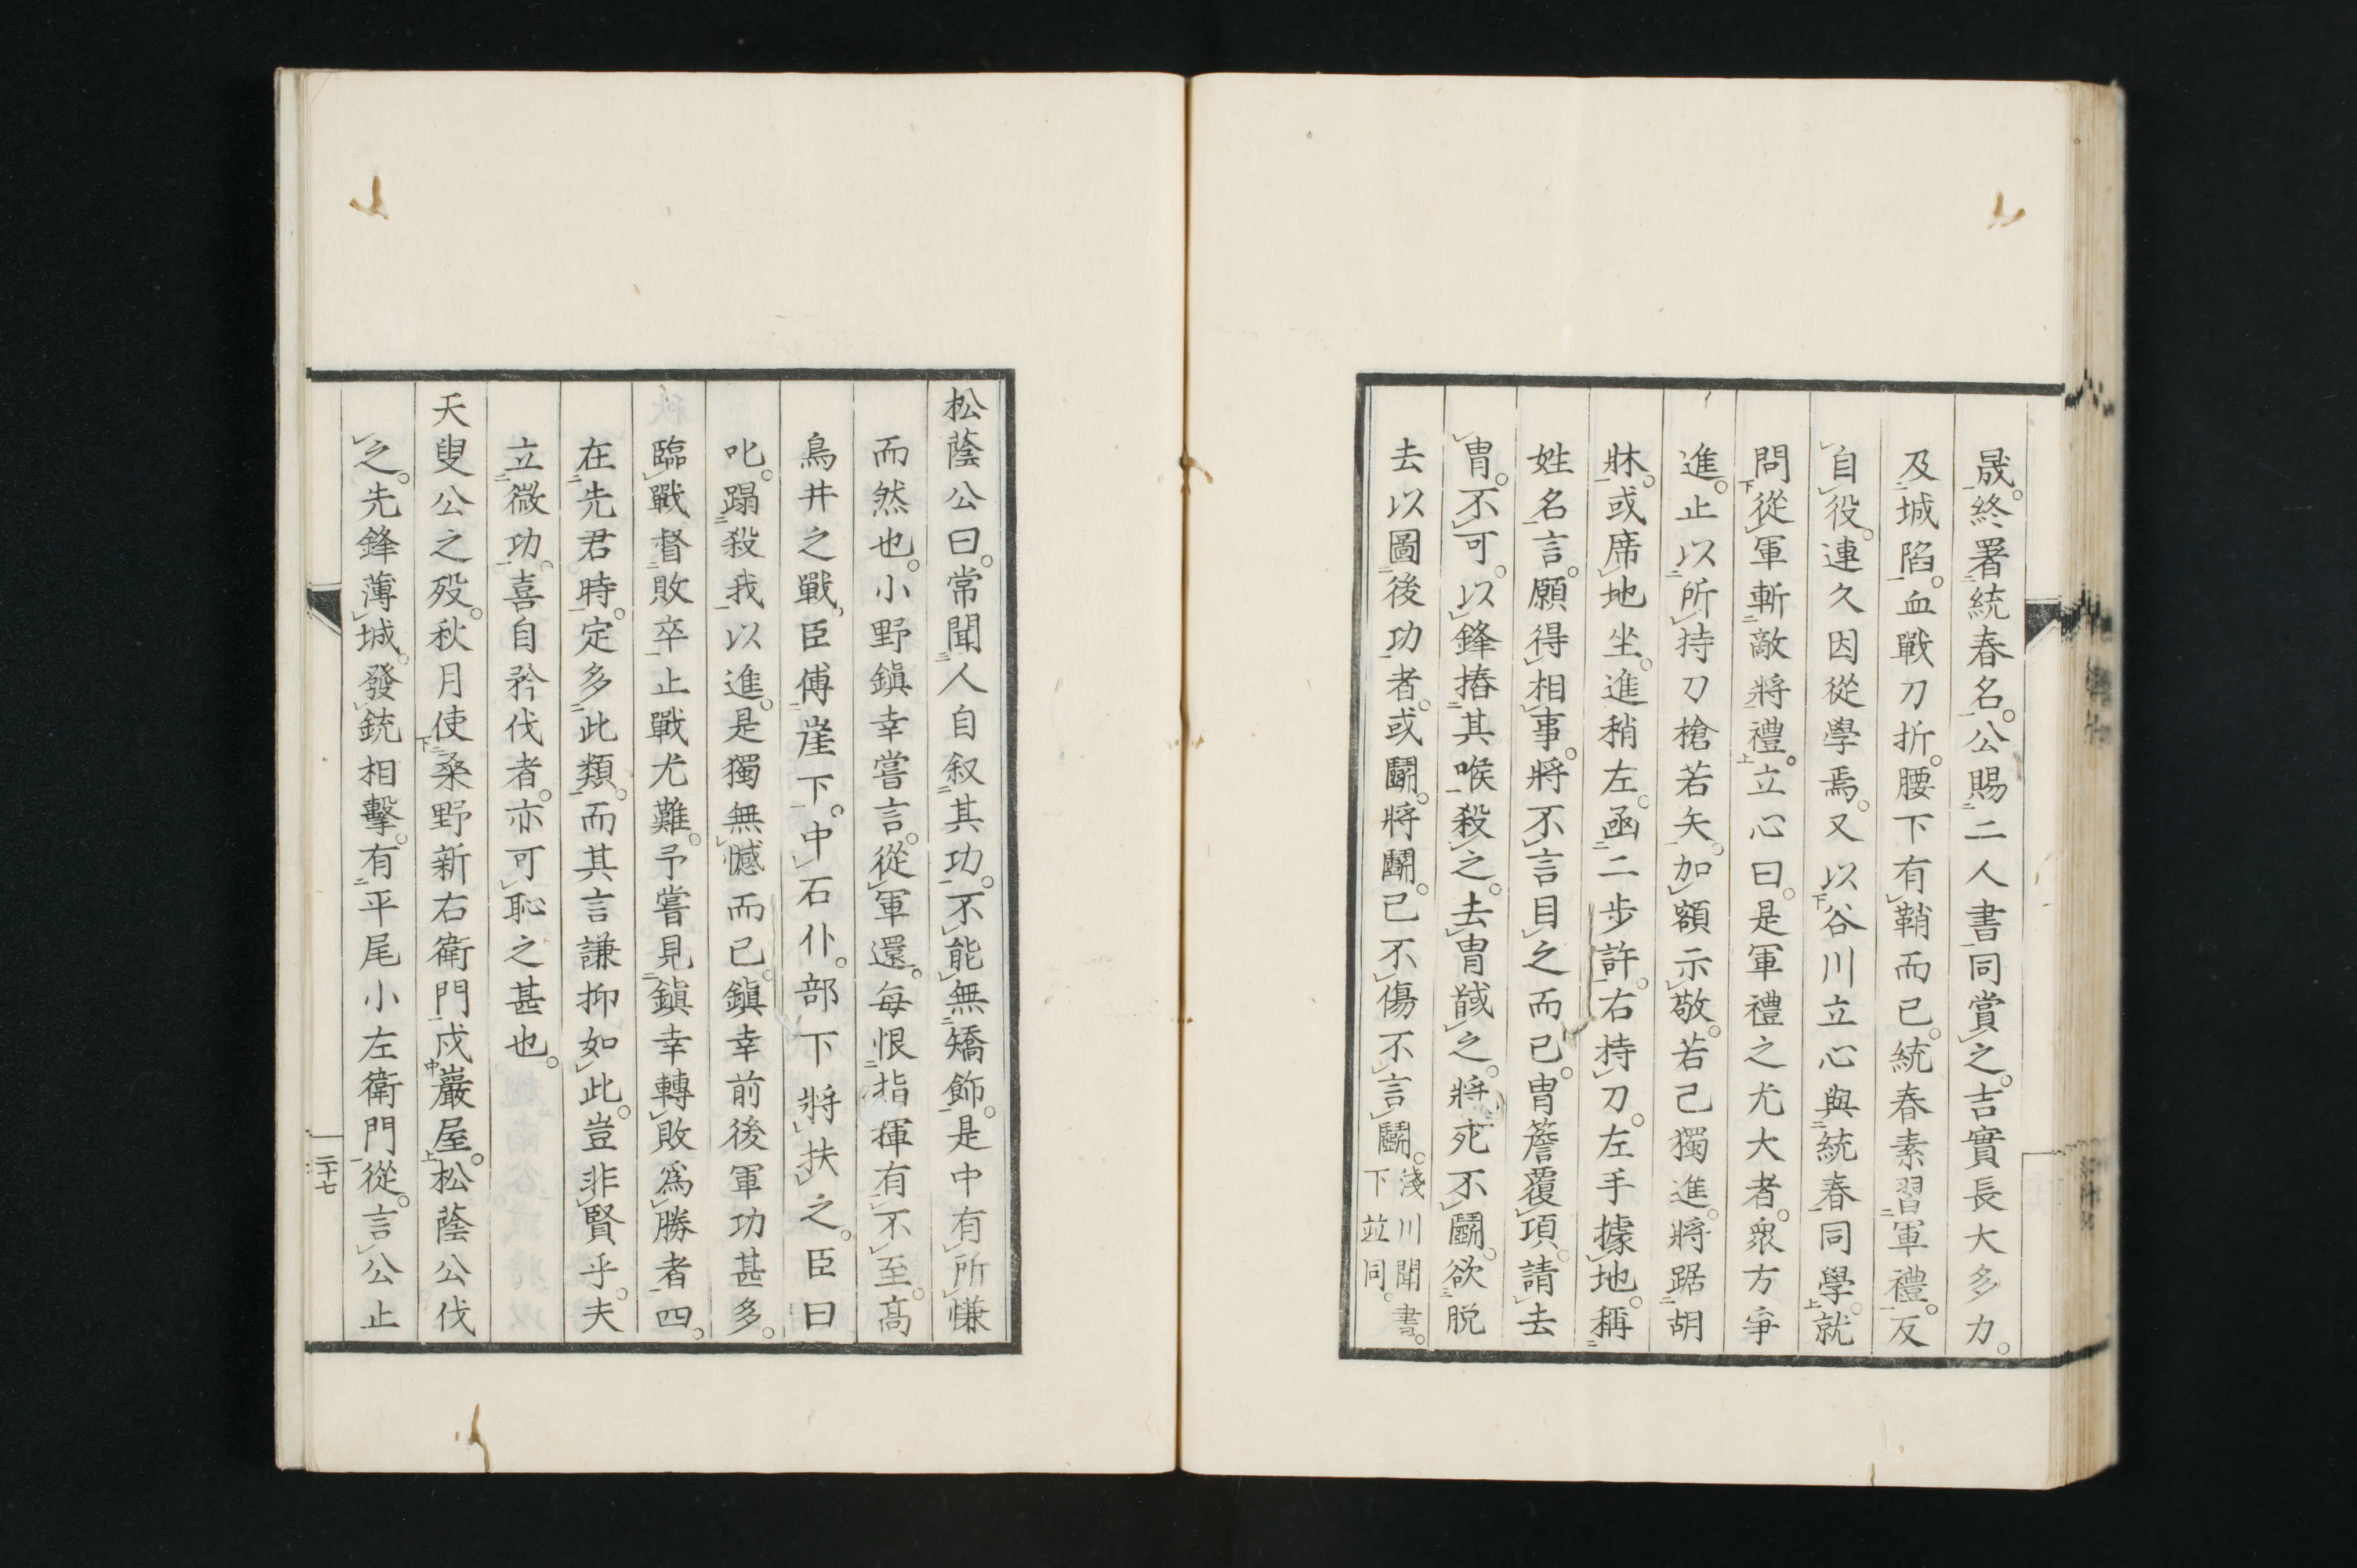 晟。終署統春名。公賜二人書同賞之。吉實長大多力。
及城陷。血戰刀折。腰下有鞘而已。統春素習軍禮。反
自役。連久因從學焉。又以谷川立心與統春同學。就
問從軍斬敵將禮。立心曰。是軍禮之尤大者。衆方爭
進。止以所持刀槍若矢。加額示敬。若己獨進。將踞胡
牀。或席地坐。進稍左。函二步許。右持刀。左手據地。稱
姓名言。願得相事。將不言目之而已。冑簷覆項。請去
冑。不可。以鋒揕其喉殺之。去冑馘之。將死不鬬。欲脱
去以圖後功者。或鬬。將鬬。己不傷不言鬬。淺川聞書。
下並同。
松蔭公曰。常聞人自叙其功。不能無矯飾。是中有所慊
而然也。小野鎭幸嘗言。從軍還。毎恨指揮有不至。高
鳥井之戰、臣傅崖下。中石仆。部下將扶之。臣曰
叱。蹋殺我以進。是獨無憾而已。鎭幸前後軍功甚多。
臨戰督敗卒止戰尤難。予嘗見鎭幸轉敗爲勝者四。
在先君時。定多此類。而其言謙抑如此。豈非賢乎。夫
立微功。喜自矜伐者。亦可恥之甚也。
天叟公之歿。秋月使桑野新右衛門戍巖屋。松蔭公伐
之。先鋒薄城。發銃相擊。有平尾小左衛門從。言公止
二十七